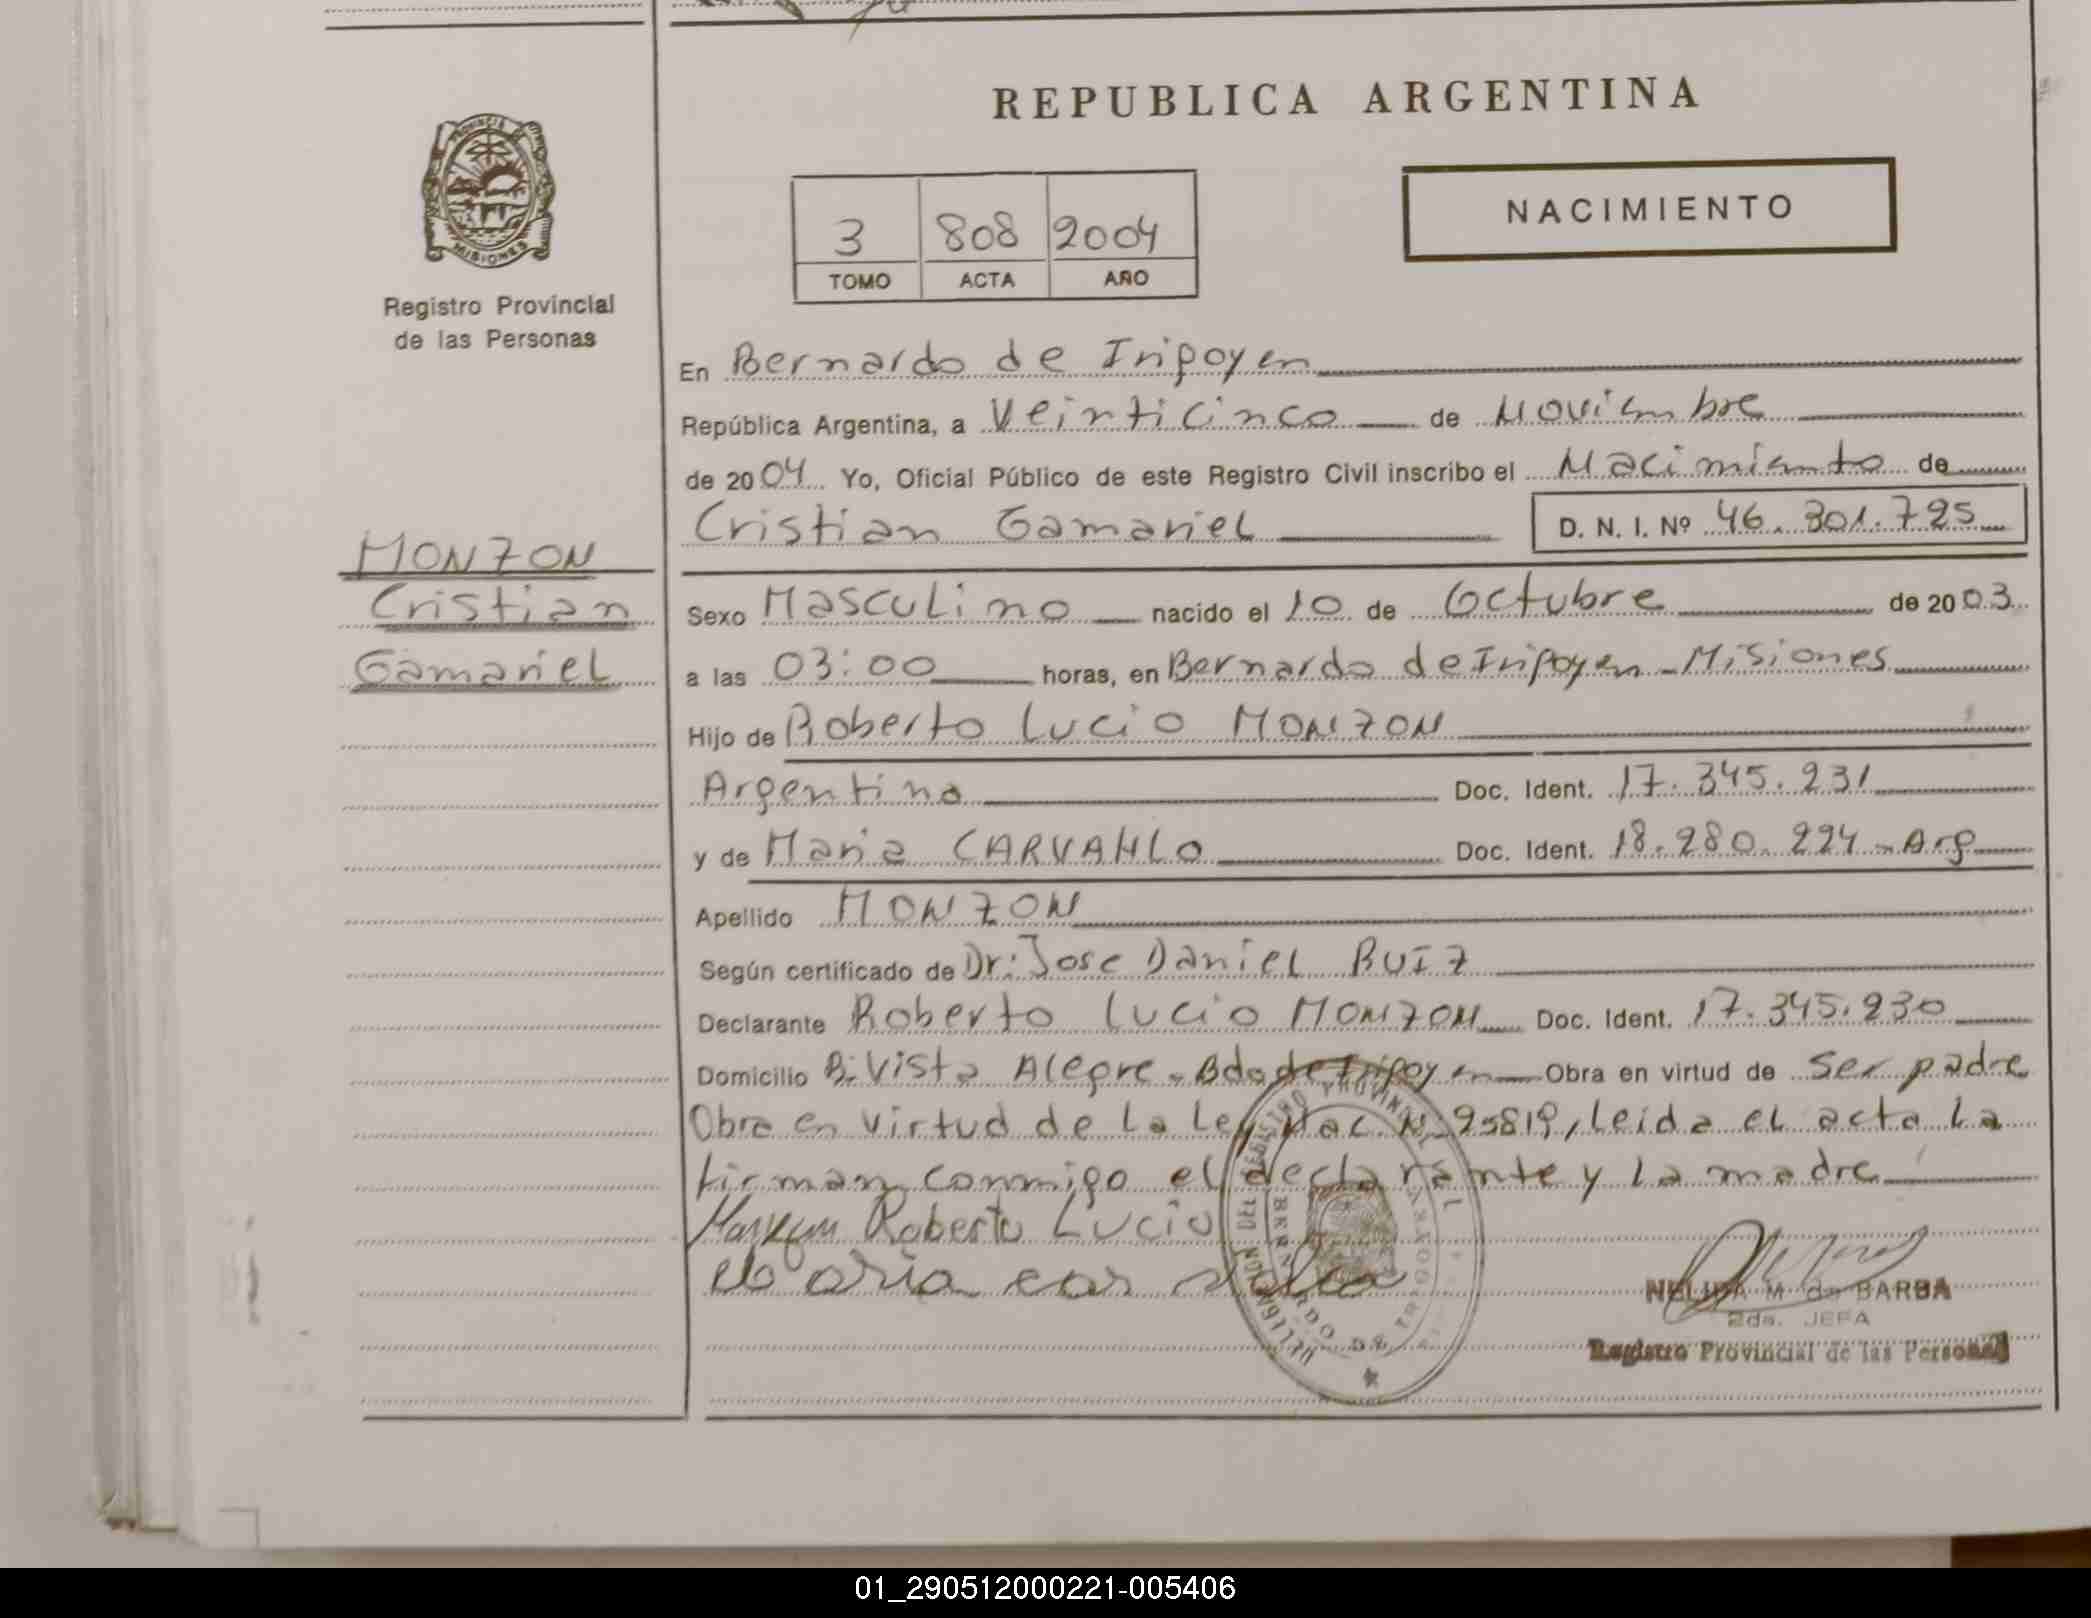 REPUBLICA ARGENTINA
PROVINCIA DE
MISIONES
Registro Provincial
de las Personas
3 808 2004
TOMO ACTA AÑO
NACIMIENTO
En Bernardo de Iripoyen
República Argentina, a Veinticinco de Noviembre
de 2004 Yo, Oficial Público de este Registro Civil inscribo el Nacimiento de
Cristian Gamariel D. N. I. Nº 46.301.725
MONZON
Cristian
Gamariel
Sexo Masculino nacido el 10 de Octubre de 2003
a las 03:00 horas, en Bernardo de Iripoyen - Misiones
Hijo de Roberto Lucio MONZON
Argentino Doc. Ident. 17.345.231
y de Maria CARVAHLO Doc. Ident. 18.280.224 - Arg
Apellido MONZON
Según certificado de Dr: Jose Daniel RUIZ
Declarante Roberto Lucio MONZON Doc. Ident. 17.345.230
Domicilio B: Vista Alegre - Bdo de Iripoyen Obra en virtud de ser padre
Obra en virtud de la Ley Nac N 25819, leida el acta la
firman conmigo el declarante y la madre
Roberto Lucio
Maria
DELEGACION DEL REGISTRO PROVINCIAL
BERNARDO DE IRIGOYEN
NELIDA M. de BARBA
2da. JEFA
Registro Provincial de las Personas
01_290512000221-005406